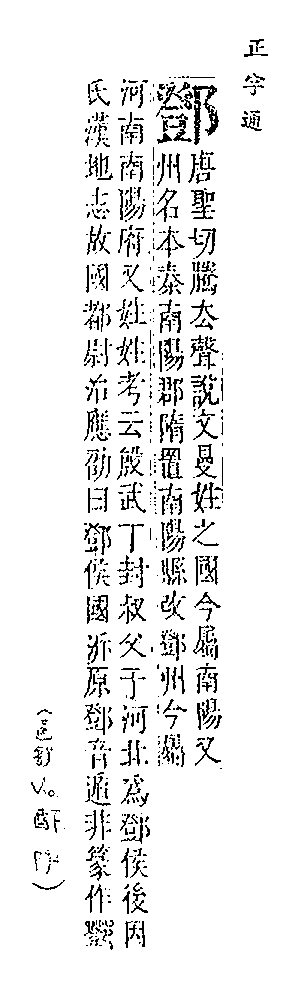 正字通
鄧
唐聖切騰去聲說文曼姓之國今屬南陽又
州名本秦南陽郡隋置南陽縣改鄧州今屬
河南南陽府又姓姓考云殷武丁封叔父于河北爲鄧侯後因
氏漢地志故國都尉治應劭曰鄧侯國泝原鄧音遁非篆作